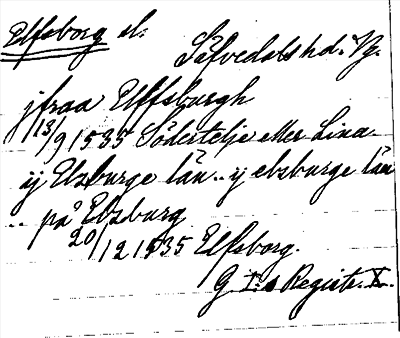 Elfsborg sl.
Säfvedals hd. Vg.
jfraa Elffsburgh
13/9 1535 Södertelje eller Lina
ij Elzburge län.. ij elzburge län
.. på Elzburg
20/12 1535 Elfsborg.
G. I:s Registr. X.